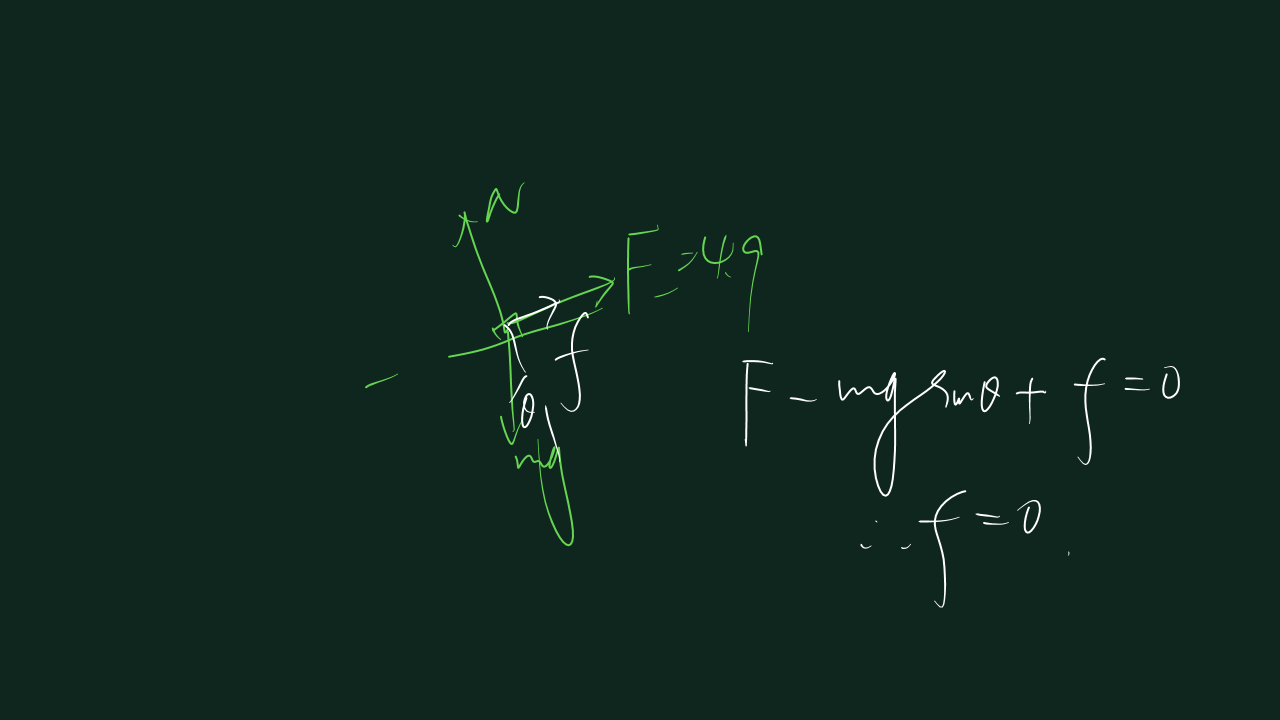 N
F = 4.9
f
θ
mg
F - mg sinθ + f = 0
∴ f = 0